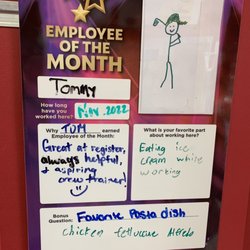 EMPLOYEE
OF THE
MONTH
Tommy
How long
have you
worked here?
Nov. 2022
Why TOM earned
Employee of the Month:
Great at register,
always helpful,
+ aspiring
crew trainer!
What is your favorite part
about working here?
Eating ice
cream while
working
Bonus
Question:
Favorite Pasta dish
chicken fettuccine Alfredo